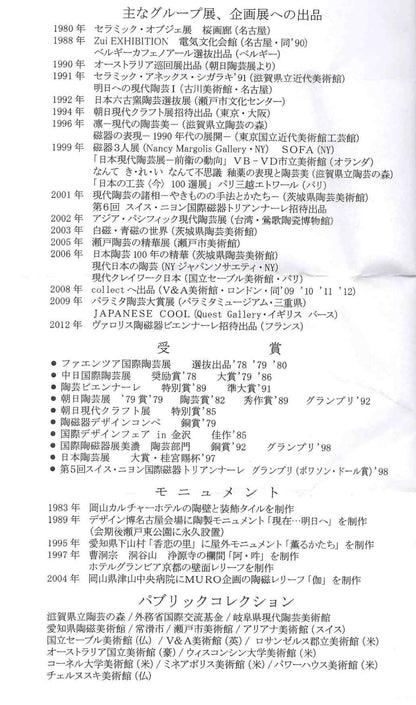 主なグループ展、企画展への出品
1980年 セラミック・オブジェ展 桜画廊(名古屋)
1988年 Zui EXHIBITION 電気文化会館(名古屋・同'90)
ベルギーカフェノアール選抜出品(ベルギー)
1990年 オーストラリア巡回展出品(朝日陶芸展より)
1991年 セラミック・アネックス・シガラキ'91(滋賀県立近代美術館)
明日への現代陶芸I(古川美術館・名古屋)
1992年 日本六古窯陶芸選抜展(瀬戸市文化センター)
1994年 朝日現代クラフト展招待出品(東京・大阪)
1996年 凛-現代の陶芸美-(滋賀県立陶芸の森)
磁器の表現-1990年代の展開-(東京国立近代美術館工芸館)
1999年 磁器3人展(Nancy Margolis Gallery・NY) SOFA(NY)
「日本現代陶芸展-前衛の動向」VB-VD市立美術館(オランダ)
なんて き・れ・い なんて不思議 釉薬の表現と陶芸美(滋賀県立陶芸の森)
「日本の工芸〈今〉100選展」パリ三越エトワール(パリ)
2001年 現代陶芸の諸相-やきものの手法とかたち-(茨城県陶芸美術館)
第6回 スイス・ニヨン国際磁器トリアンナーレ招待出品
2002年 アジア・パシフィック現代陶芸展(台湾・鶯歌陶瓷博物館)
2003年 白磁・青磁の世界(茨城県陶芸美術館)
2005年 瀬戸陶芸の精華展(瀬戸市美術館)
2006年 日本陶芸100年の精華(茨城県陶芸美術館)
現代日本の陶芸(NYジャパンソサエティ・NY)
現代クレイワーク日本(国立セーブル美術館・パリ)
2008年 collectへ出品(V&A美術館・ロンドン・同'09 '10 '11 '12)
2009年 パラミタ陶芸大賞展(パラミタミュージアム・三重県)
JAPANESE COOL(Quest Gallery・イギリス バース)
2012年 ヴァロリス陶磁器ビエンナーレ招待出品(フランス)
受 賞
● ファエンツァ国際陶芸展 選抜出品'78 '79 '80
● 中日国際陶芸展 奨励賞'78 大賞'79 '86
● 陶芸ビエンナーレ 特別賞'89 準大賞'91
● 朝日陶芸展 '79賞'79 陶芸賞'82 秀作賞'89 グランプリ'92
● 朝日現代クラフト展 特別賞'85
● 陶磁器デザインコンペ 銅賞'79
● 国際デザインフェア in 金沢 佳作'85
● 国際陶磁器展美濃 陶芸部門 銅賞'92 グランプリ'98
● 日本陶芸展 大賞・桂宮賜杯'97
● 第5回スイス・ニヨン国際磁器トリアンナーレ グランプリ(ポワソン・ドール賞)'98
モニュメント
1983年 岡山カルチャーホテルの陶壁と装飾タイルを制作
1989年 デザイン博名古屋会場に陶製モニュメント「現在…明日へ」を制作
(会期後瀬戸東公園に永久設置)
1995年 愛知県下山村「香恋の里」に屋外モニュメント「薫るかたち」を制作
1997年 曹洞宗 洞谷山 浄源寺の欄間「阿・吽」を制作
ホテルグランビア京都の壁面レリーフを制作
2004年 岡山県津山中央病院にMURO企画の陶磁レリーフ「伽」を制作
パブリックコレクション
滋賀県立陶芸の森/外務省国際交流基金/岐阜県現代陶芸美術館
愛知県陶磁美術館/常滑市/瀬戸市美術館/アリアナ美術館(スイス)
国立セーブル美術館(仏)/V&A美術館(英)/ロサンゼルス郡立美術館(米)
オーストラリア国立美術館(豪)/ウィスコンシン大学美術館(米)
コーネル大学美術館(米)/ミネアポリス美術館(米)/パワーハウス美術館(米)
チェルヌスキ美術館(仏)